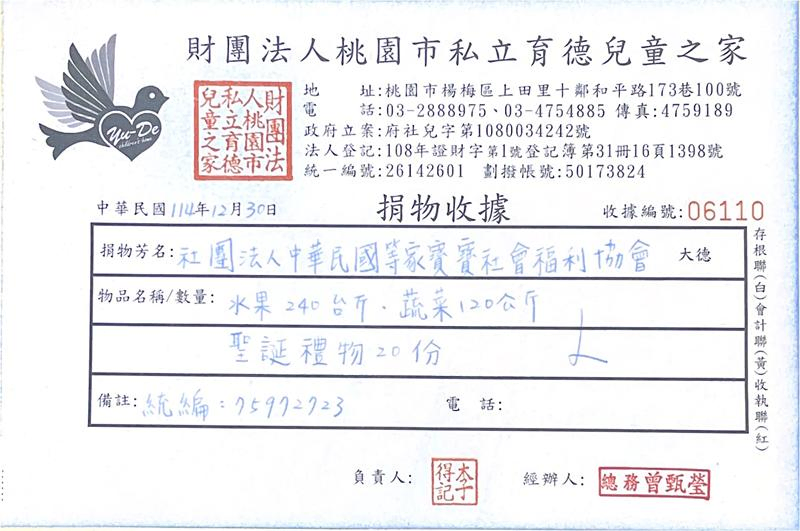 財團法人桃園市私立育德兒童之家
Yu-De
children's home
財團法人桃園市私立育德兒童之家
地　　址:桃園市楊梅區上田里十鄰和平路173巷100號
電　　話:03-2888975、03-4754885 傳真:4759189
政府立案:府社兒字第1080034242號
法人登記:108年證財字第1號登記簿第31冊16頁1398號
統一編號:26142601　劃撥帳號:50173824
中華民國114年12月30日
捐物收據
收據編號:06110
捐物芳名:社團法人中華民國等家寶寶社會福利協會 大德
物品名稱/數量:水果240台斤、蔬菜120公斤
聖誕禮物20份
備註:統編:75972723
電　話:
存根聯(白)會計聯(黃)收執聯(紅)
負責人:
經辦人:總務曾甄瑩